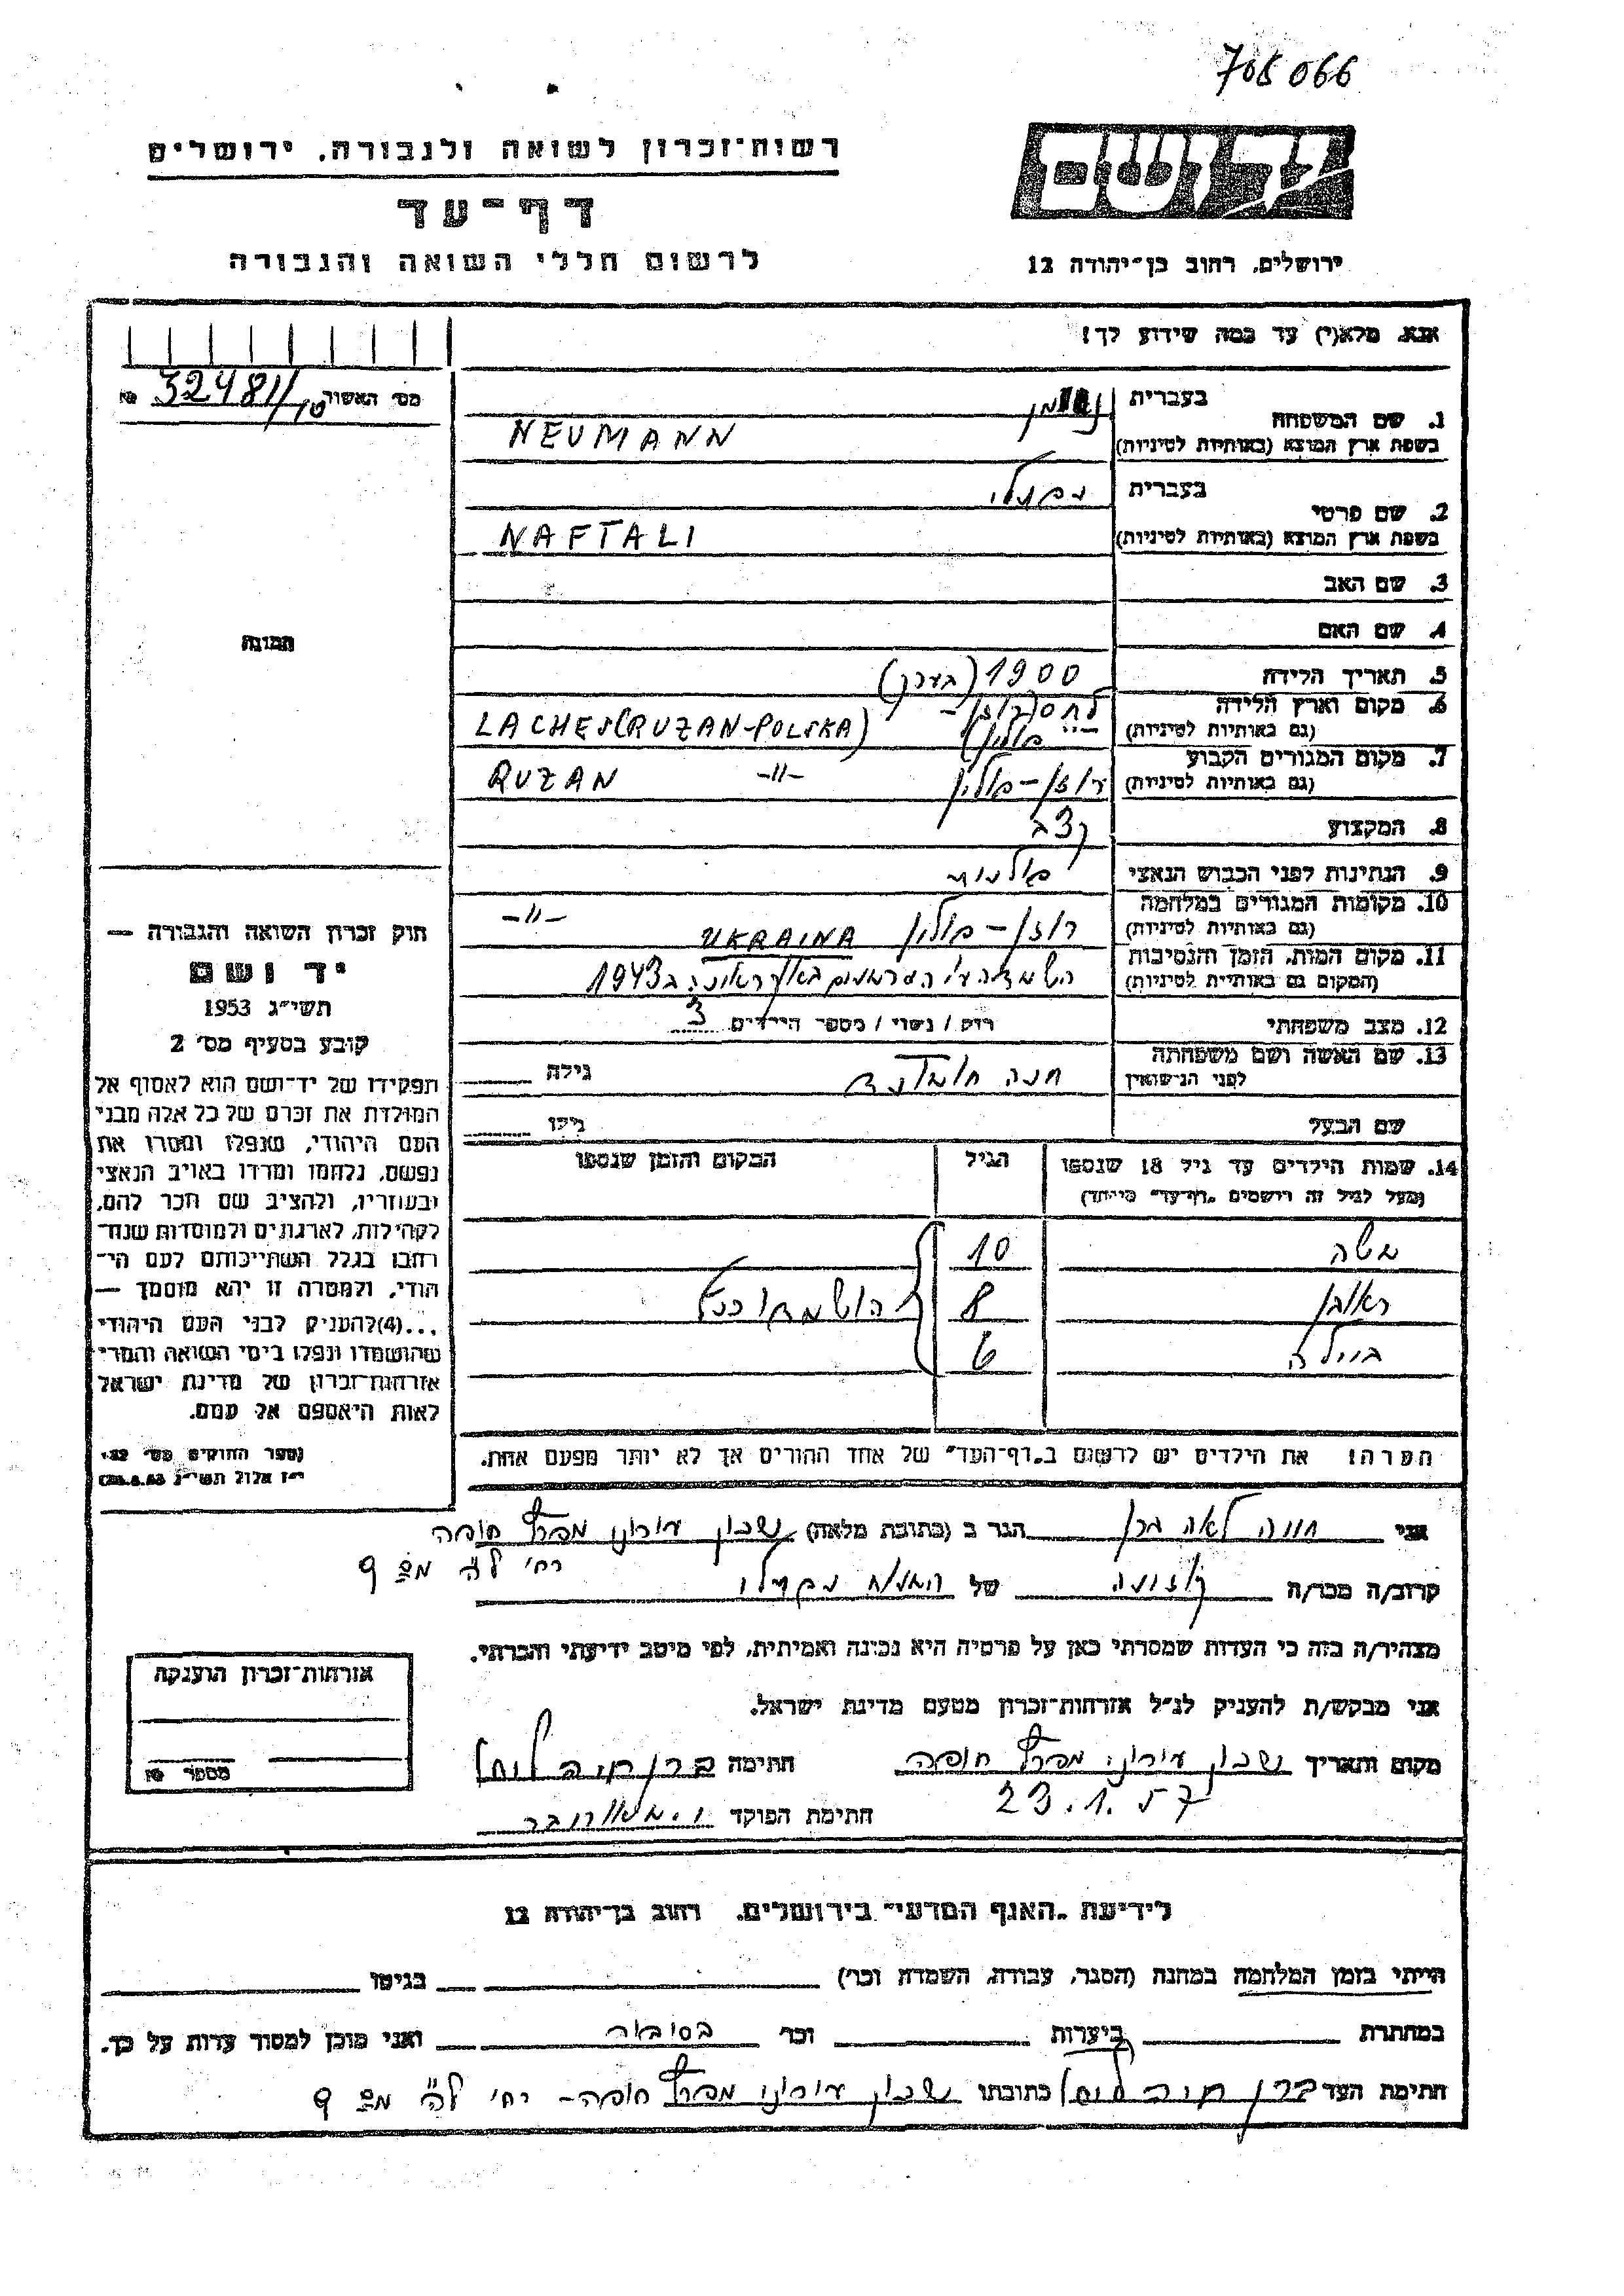 708066
יד ושם
רשות־זכרון לשואה ולגבורה, ירושלים
דף־עד
לרשום חללי השואה והגבורה
ירושלים, רחוב בן־יהודה 12
אנא, מלא(י) עד כמה שידוע לך!
מס' האשור 32481/ מס
1. שם המשפחה
בעברית
בשפת ארץ המוצא (באותיות לטיניות) NEUMANN
2. שם פרטי
בעברית נפתלי
בשפת ארץ המוצא (באותיות לטיניות) NAFTALI
3. שם האב
4. שם האם
תמונה
5. תאריך הלידה 1900 (בערך)
6. מקום וארץ הלידה
(גם באותיות לטיניות) LACHES(RUZAN-POLSKA)
7. מקום המגורים הקבוע
(גם באותיות לטיניות) רוזן – פולין -"- RUZAN
8. המקצוע קצב
9. הנתינות לפני הכבוש הנאצי פולנית
10. מקומות המגורים במלחמה
(גם באותיות לטיניות) רוזן – פולין -"-
UKRAINA
11. מקום המות, הזמן והנסיבות
(המקום גם באותיות לטיניות) הושמד ע"י הגרמנים באוקראינה ב 1943
12. מצב משפחתי רוק / נשוי / מספר הילדים 3
13. שם האשה ושם משפחתה
לפני הנישואין חנה גילה
שם הבעל גילו
14. שמות הילדים עד גיל 18 שנספו
(מעל לגיל זה רושמים "דף־עד" מיוחד)
הגיל
המקום והזמן שנספו
משה 10
ראובן 8 הושמדו כנ"ל
ביילה 6
הערה! את הילדים יש לרשום ב"דף־העד" של אחד ההורים אך לא יותר מפעם אחת.
חוק זכרון השואה והגבורה —
יד ושם
תשי"ג 1953
קובע בסעיף מס' 2
תפקידו של יד־ושם הוא לאסוף אל
המולדת את זכרם של כל אלה מבני
העם היהודי, שנפלו ומסרו את
נפשם, נלחמו ומרדו באויב הנאצי
ובעוזריו, ולהציב שם וזכר להם,
לקהילות, לארגונים ולמוסדות שנח־
רבו בגלל השתייכותם לעם הי־
הודי, ולמטרה זו יהא מוסמך —
...(4)להעניק לבני העם היהודי
שהושמדו ונפלו בימי השואה והמרי
אזרחות־זכרון של מדינת ישראל
לאות היאספם אל עמם.
(ספר החוקים מס' 132,
י"ז אלול תשי"ג 28.8.53)
אני חיה לאה ברן הגר ב (כתובת מלאה) שכון עירוני מפרץ חיפה
רח' ל"ה מס 9
קרוב/ה מכר/ה קרובה של המנוח נפתלי
מצהיר/ה בזה כי העדות שמסרתי כאן על פרטיה היא נכונה ואמיתית, לפי מיטב ידיעתי והכרתי.
אני מבקש/ת להעניק לנ"ל אזרחות־זכרון מטעם מדינת ישראל.
מקום ותאריך שכון עירוני מפרץ חיפה חתימה ברן חיה
23.1.57
חתימת הפוקד
אזרחות־זכרון הוענקה
מספר מס
לידיעת "האגף המדעי" בירושלים, רחוב בן־יהודה 12
הייתי בזמן המלחמה במחנה (הסגר, עבודה, השמדה וכו') בגיטו
במחתרת ביערות וכו' בסיביר ואני מוכן למסור עדות על כך.
חתימת העד ברן חיה כתובתו שכון עירוני מפרץ חיפה - רח' ל"ה מס 9